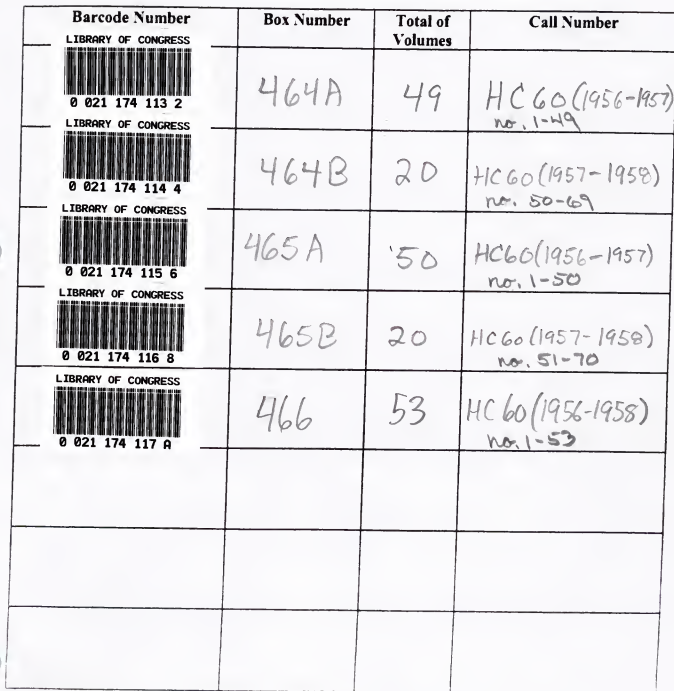 Barcode Number Box Number Total of Volumes Call Number
LIBRARY OF CONGRESS
0 021 174 113 2 464A 49 HC60(1956-1957)
no. 1-49
LIBRARY OF CONGRESS
0 021 174 114 4 464B 20 HC60(1957-1958)
no. 50-69
LIBRARY OF CONGRESS
0 021 174 115 6 465A 50 HC60(1956-1957)
no. 1-50
LIBRARY OF CONGRESS
0 021 174 116 8 465B 20 HC60(1957-1958)
no. 51-70
LIBRARY OF CONGRESS
0 021 174 117 A 466 53 HC60(1956-1958)
no. 1-53